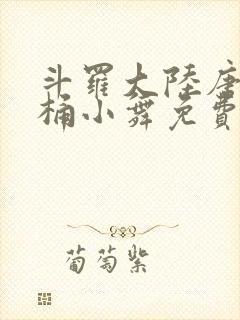 斗羅大陸唐
桶小舞免費
葡萄紫